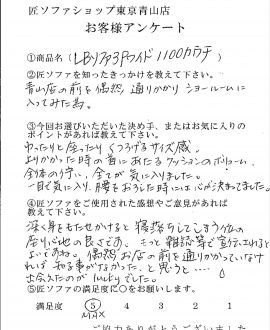 匠ソファショップ東京青山店
お客様アンケート
①商品名(LBソファ3Pワイド1100カウチ)
②匠ソファを知ったきっかけを教えて下さい。
青山店の前を偶然、通りかかりショールームに
入ってみた為。
③今回お選びいただいた決め手、またはお気に入りの
ポイントがあれば教えて下さい。
ゆったりと座ったり、くつろげるサイズ感。
よりかかった時の背にあたるクッションのボリューム、
全体の佇い、全てが気に入りました。
一目で気に入り、腰をおろした時には心が決まってました。
④匠ソファをご使用された感想やご意見があれば
教えて下さい。
深く身をもたせかけると寝落ちしてしまう位の
座り心地の良さです。もっと雑誌等で宣伝されると
よいですね。偶然お店の前を通りかかっていなけ
れば知る事がなかった、と思うと…
出会えたのがhappyでした。
⑤匠ソファの満足度に○をお願いします。
満足度 5 4 3 2 1
MAX
ご協力ありがとうございました